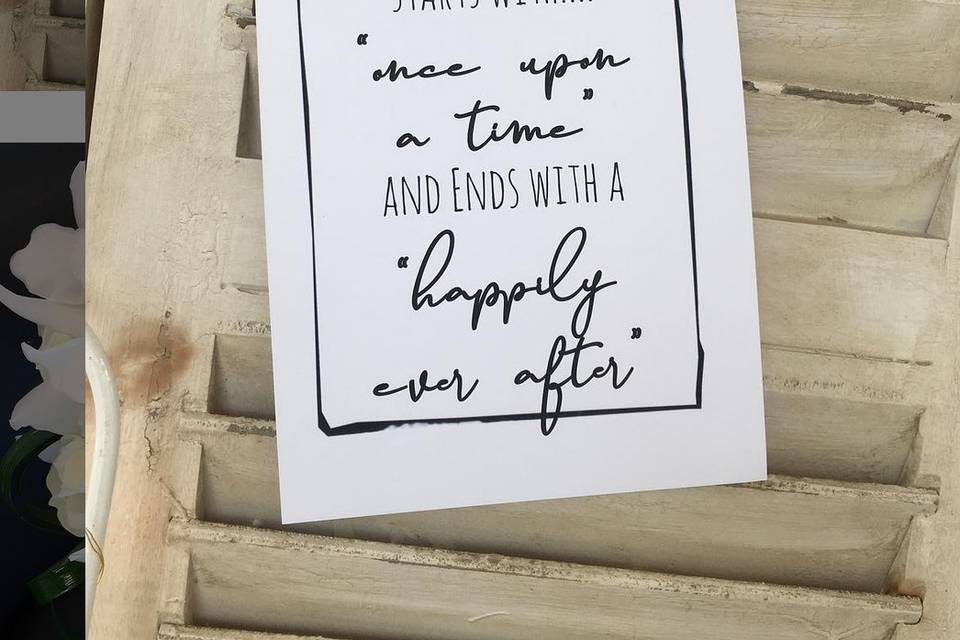 STARTS WITH....
"once upon
a time"
AND ENDS WITH A
"happily
ever after"